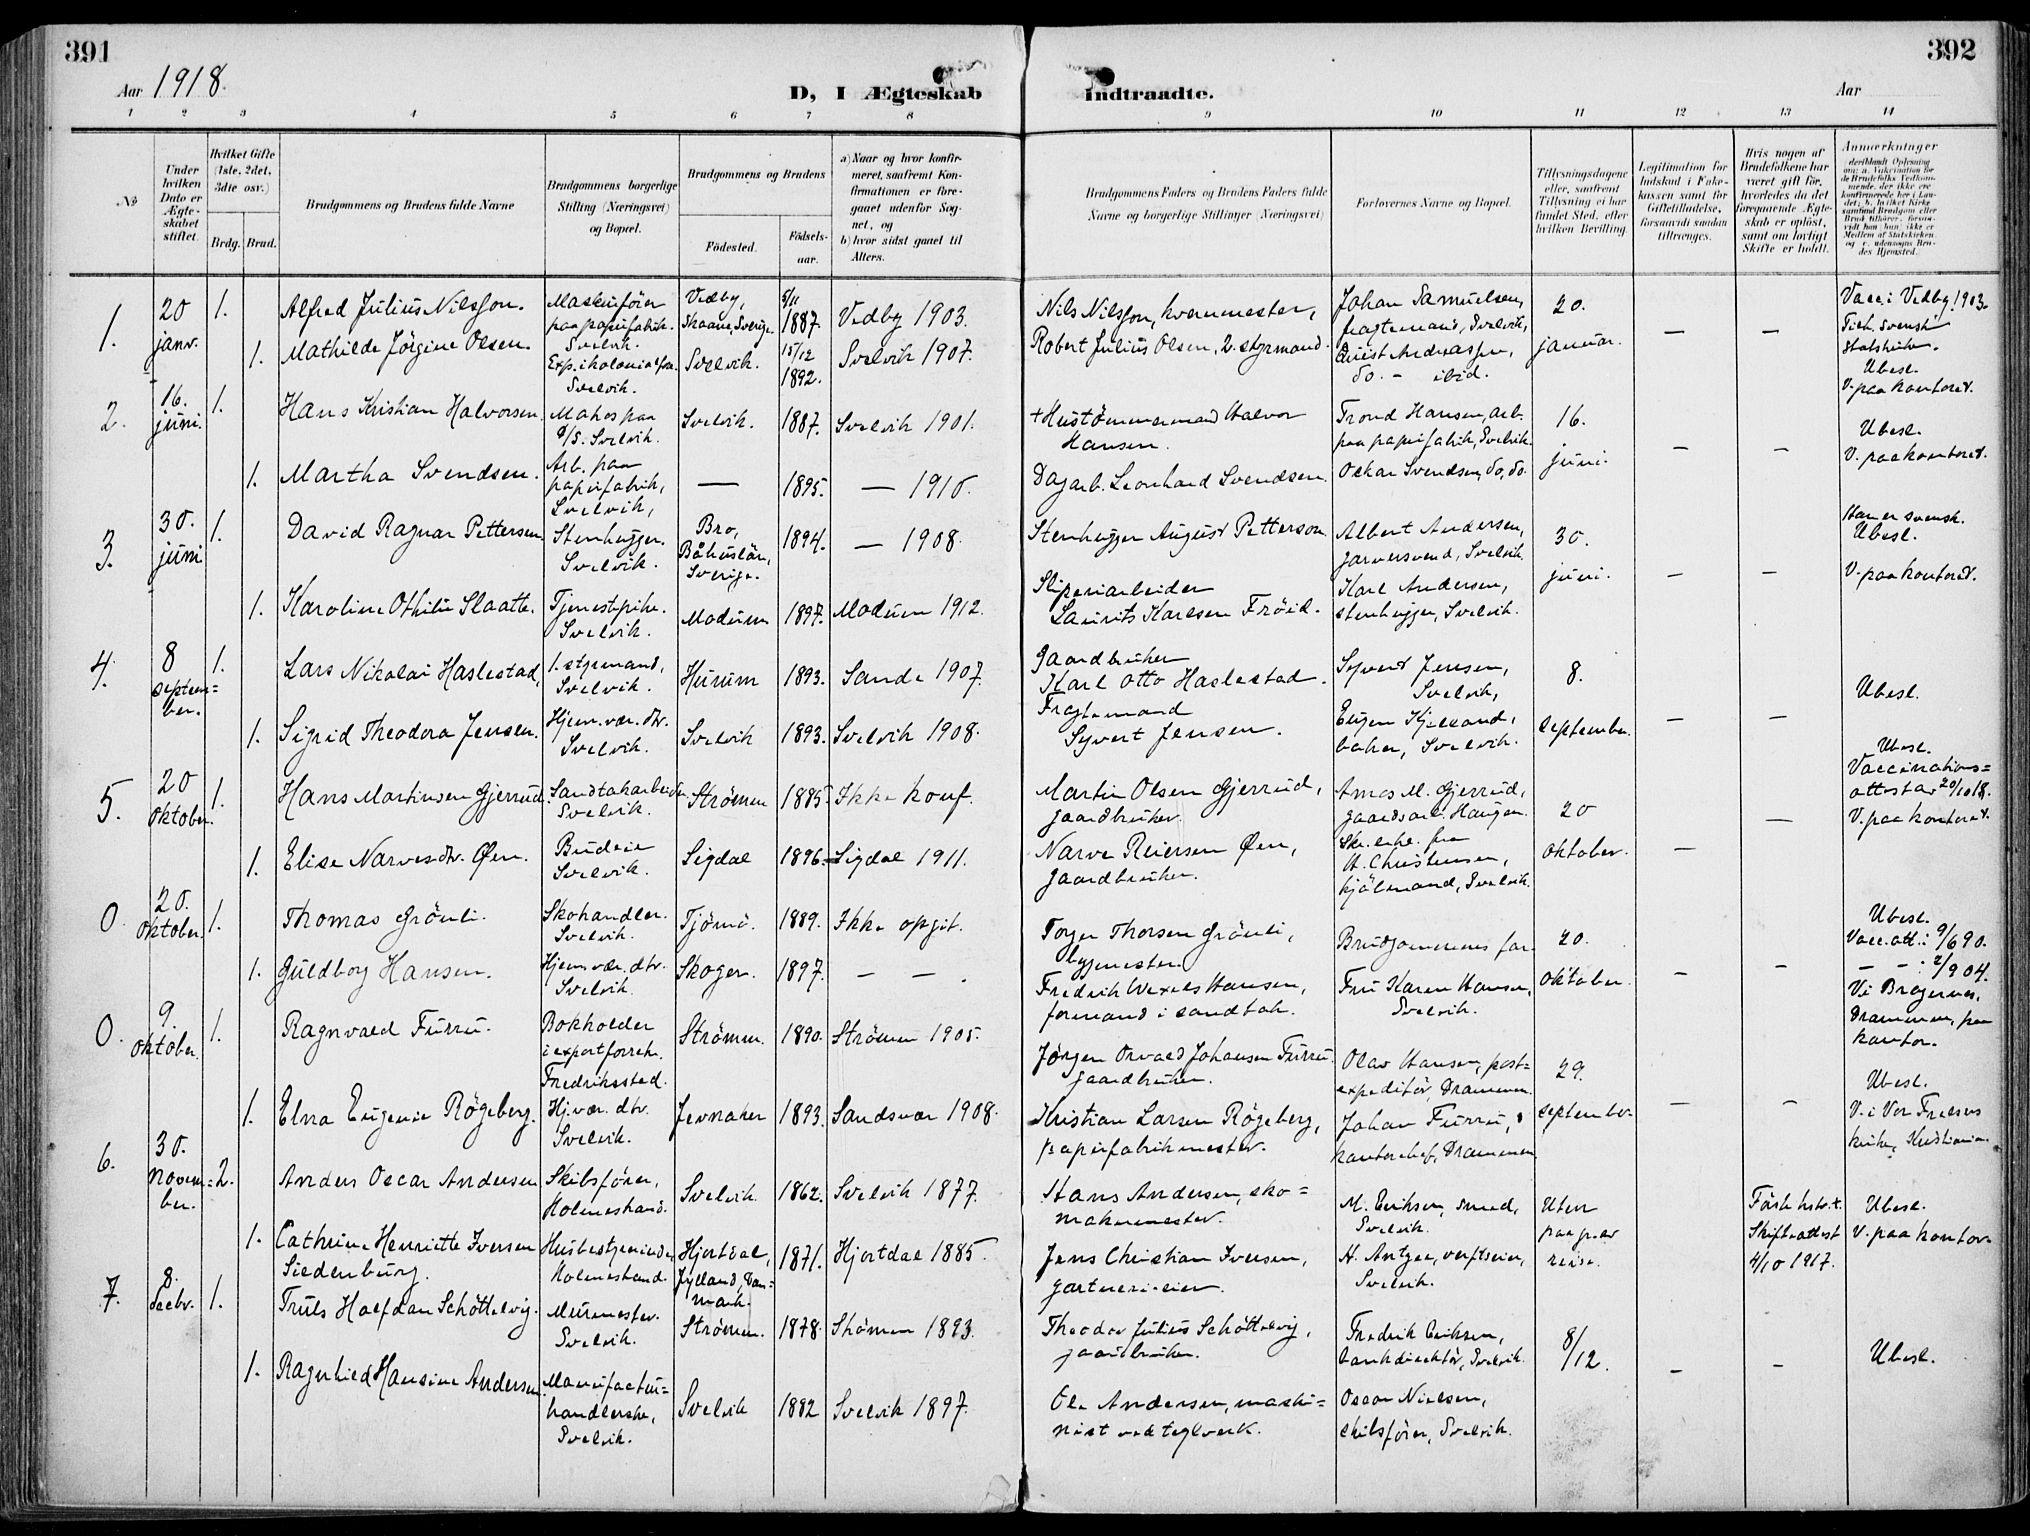 391
392
Aar 1918.
D, I Ægteskab Indtraadte.
Aar
1 2 3 4 5 6 7 8 9 10 11 12 13 14
No
Under hvilken Dato er Ægteskabet stiftet.
Hvilket Gifte (1ste, 2det, 3dte osv.)
Brdg. Brud.
Brudgommens og Brudens fulde Navne
Brudgommens borgerlige Stilling (Næringsvei) og Bopæl.
Brudgommens og Brudens
Födested.
Födsels-aar.
a) Naar og hvor konfirmeret, saafremt Konfirmationen er foregaaet udenfor Sognet, og
b) hvor sidst gaaet til Alters.
Brudgommens Faders og Brudens Faders fulde Navne og borgerlige Stillinger (Næringsvei)
Forlovernes Navne og Bopæl.
Tillysningsdagene eller, saafremt Tillysning ei har fundet Sted, efter hvilken Bevilling.
Legitimation for Indskud i Enkekassen samt for Giftetilladelse, forsaavidt saadan tiltrænges.
Hvis nogen af Brudefolkene har været gift för, hvorledes da det foregaaende Ægteskab er oplöst, samt om lovligt Skifte er holdt.
Anmærkninger
1. 20 janv. 1. Alfred Julius Nilsson. Maskinförer paa papirfabrik. Svelvik. Vedby, Skaane, Sverige. 5/11 1887. Vedby 1903. Nils Nilsson, kvernmester, Johan Samuelsen, fragtemand, Svelvik, 20. januar. — — Vacc. i Vedby 1903. Tilh. svensk Statskirke. Ubesl.
1. Mathilde Jørgine Olsen. Exp. i kolonialfor. Svelvik. Svelvik. 15/12 1892. Svelvik 1907. Robert Julius Olsen, 2. styrmand. Andreassen, do. - ibid. V. paa kontoret.
2. 16. juni. 1. Hans Kristian Halvorsen. Matros paa S/S. Svelvik. Svelvik. 1887. Svelvik 1901. + Hustömmermand Halvor Hansen. Trond Hansen, arb. paa papirfabrik, Svelvik. 16. juni. — — Ubesl. V. paa kontoret.
1. Martha Svendsen. Arb. paa papirfabrik, Svelvik, — 1895. — 1910. Dagarb. Leonhard Svendsen. Oskar Svendsen, do, do.
3. 30. juni 1. David Ragnar Pettersen Stenhugger. Svelvik. Bro, Båhuslän, Sverige. 1894. — 1908. Stenhugger August Petterson Albert Andersen, garversvend, Svelvik. 30. juni. — — Han er svensk. Ubesl. V. paa kontoret.
1. Karoline Othilie Slaatte. Tjenestepike. Svelvik. Modum 1897. Modum 1912. Sliperiarbeider Laurits Karlsen Fröid. Karl Andersen, stenhugger, Svelvik.
4. 8 september. 1. Lars Nikolai Haslestad, 1. styrmand, Svelvik. Hurum 1893. Sande 1907. Gaardbruker Karl Otto Haslestad. Syvert Jensen, Svelvik, 8. september. — — Ubesl.
1. Sigrid Theodora Jensen. Hjem. vær. dtr. Svelvik. Svelvik 1893. Svelvik 1908. Fragtemand Syvert Jensen. Eugen Kjelsand, baker, Svelvik.
5. 20 Oktober. 1. Hans Martinsen Gjerrud. Sandtakarbeider Svelvik. Strömm 1885. Ikke konf. Martin Olsen Gjerrud, gaardbruker. M. Gjerrud, gaardsarb. Haugen. 20 oktober. — — Ubesl. Vaccinationsattest av 20/10 18. V. paa kontoret.
1. Elise Narvesdtr. Øen. Budeie Svelvik. Sigdal 1896. Sigdal 1911. Narve Reiersen Øen, gaardbruker. Christensen, Svelvik.
0. 20. oktober. 1. Thomas Grönli. Skohandler. Svelvik. Tjömö. 1889. Ikke opgit. Torger Thorsen Grönli, bygmester. Brudgommens far 20. oktober. — — Ubesl. Vacc. att.: 9/6 90. — - : 2/9 04. V. i Bragernes, Drammen, paa kontor.
1. Guldborg Hansen. Hjem. vær. dtr. Svelvik. Skoger. 1897. — — Fredrik Wexels Hansen, formand i sandtak. Fru Karen Hansen, Svelvik.
0. 9. oktober. 1. Ragnvald Furru. Bokholder i exportforretn. Fredriksstad. Strömm. 1890. Strömm 1905. Jørgen Orvald Johansen Furru gaardbruker. Olav Hansen, postexpeditör, Drammen. 29. september — — Ubesl. V. i Vor Frelsers kirke, Kristiania.
1. Elna Eugenie Rögeberg. Hj. vær. dtr. Svelvik. Jevnaker 1893. Sandsvær 1908. Kristian Larsen Rögeberg, papirfabrikmester. Johan Furru, kontorchef, Drammen.
6. 30. november. 2. Anders Oscar Andersen Skibsfører, Holmestrand. Svelvik. 1862. Svelvik 1877. Hans Andersen, skomakermester. M. Eriksen, smed, Svelvik. Uten paagaar reise. Første hstr. † Skifteattest 4/10 1917. Ubesl. V. paa kontor.
1. Cathrine Henriette Iversen Siedenburg. Husbestyrerinde, Holmestrand. Hjortdal, Jylland, Danmark. 1871. Hjortdal 1885. Jens Christian Iversen, gartneri-eier. H. Antzee, verftseier, Svelvik.
7. 8. decbr. 1. Truls Halfdan Schöttelvig. Murmester. Svelvik. Strömm. 1878. Strömm 1893. Theodor Julius Schöttelvig, gaardbruker. Fredrik Eriksen, bankdirektör, Svelvik. 8/12. — — Ubesl.
1. Ragnhild Hansine Andersen. Manufacturhandlerske, Svelvik. Svelvik 1882 Svelvik 1897. Ole Andersen, maskinist ved teglverk. Oscar Nielsen, skibsförer, Svelvik.